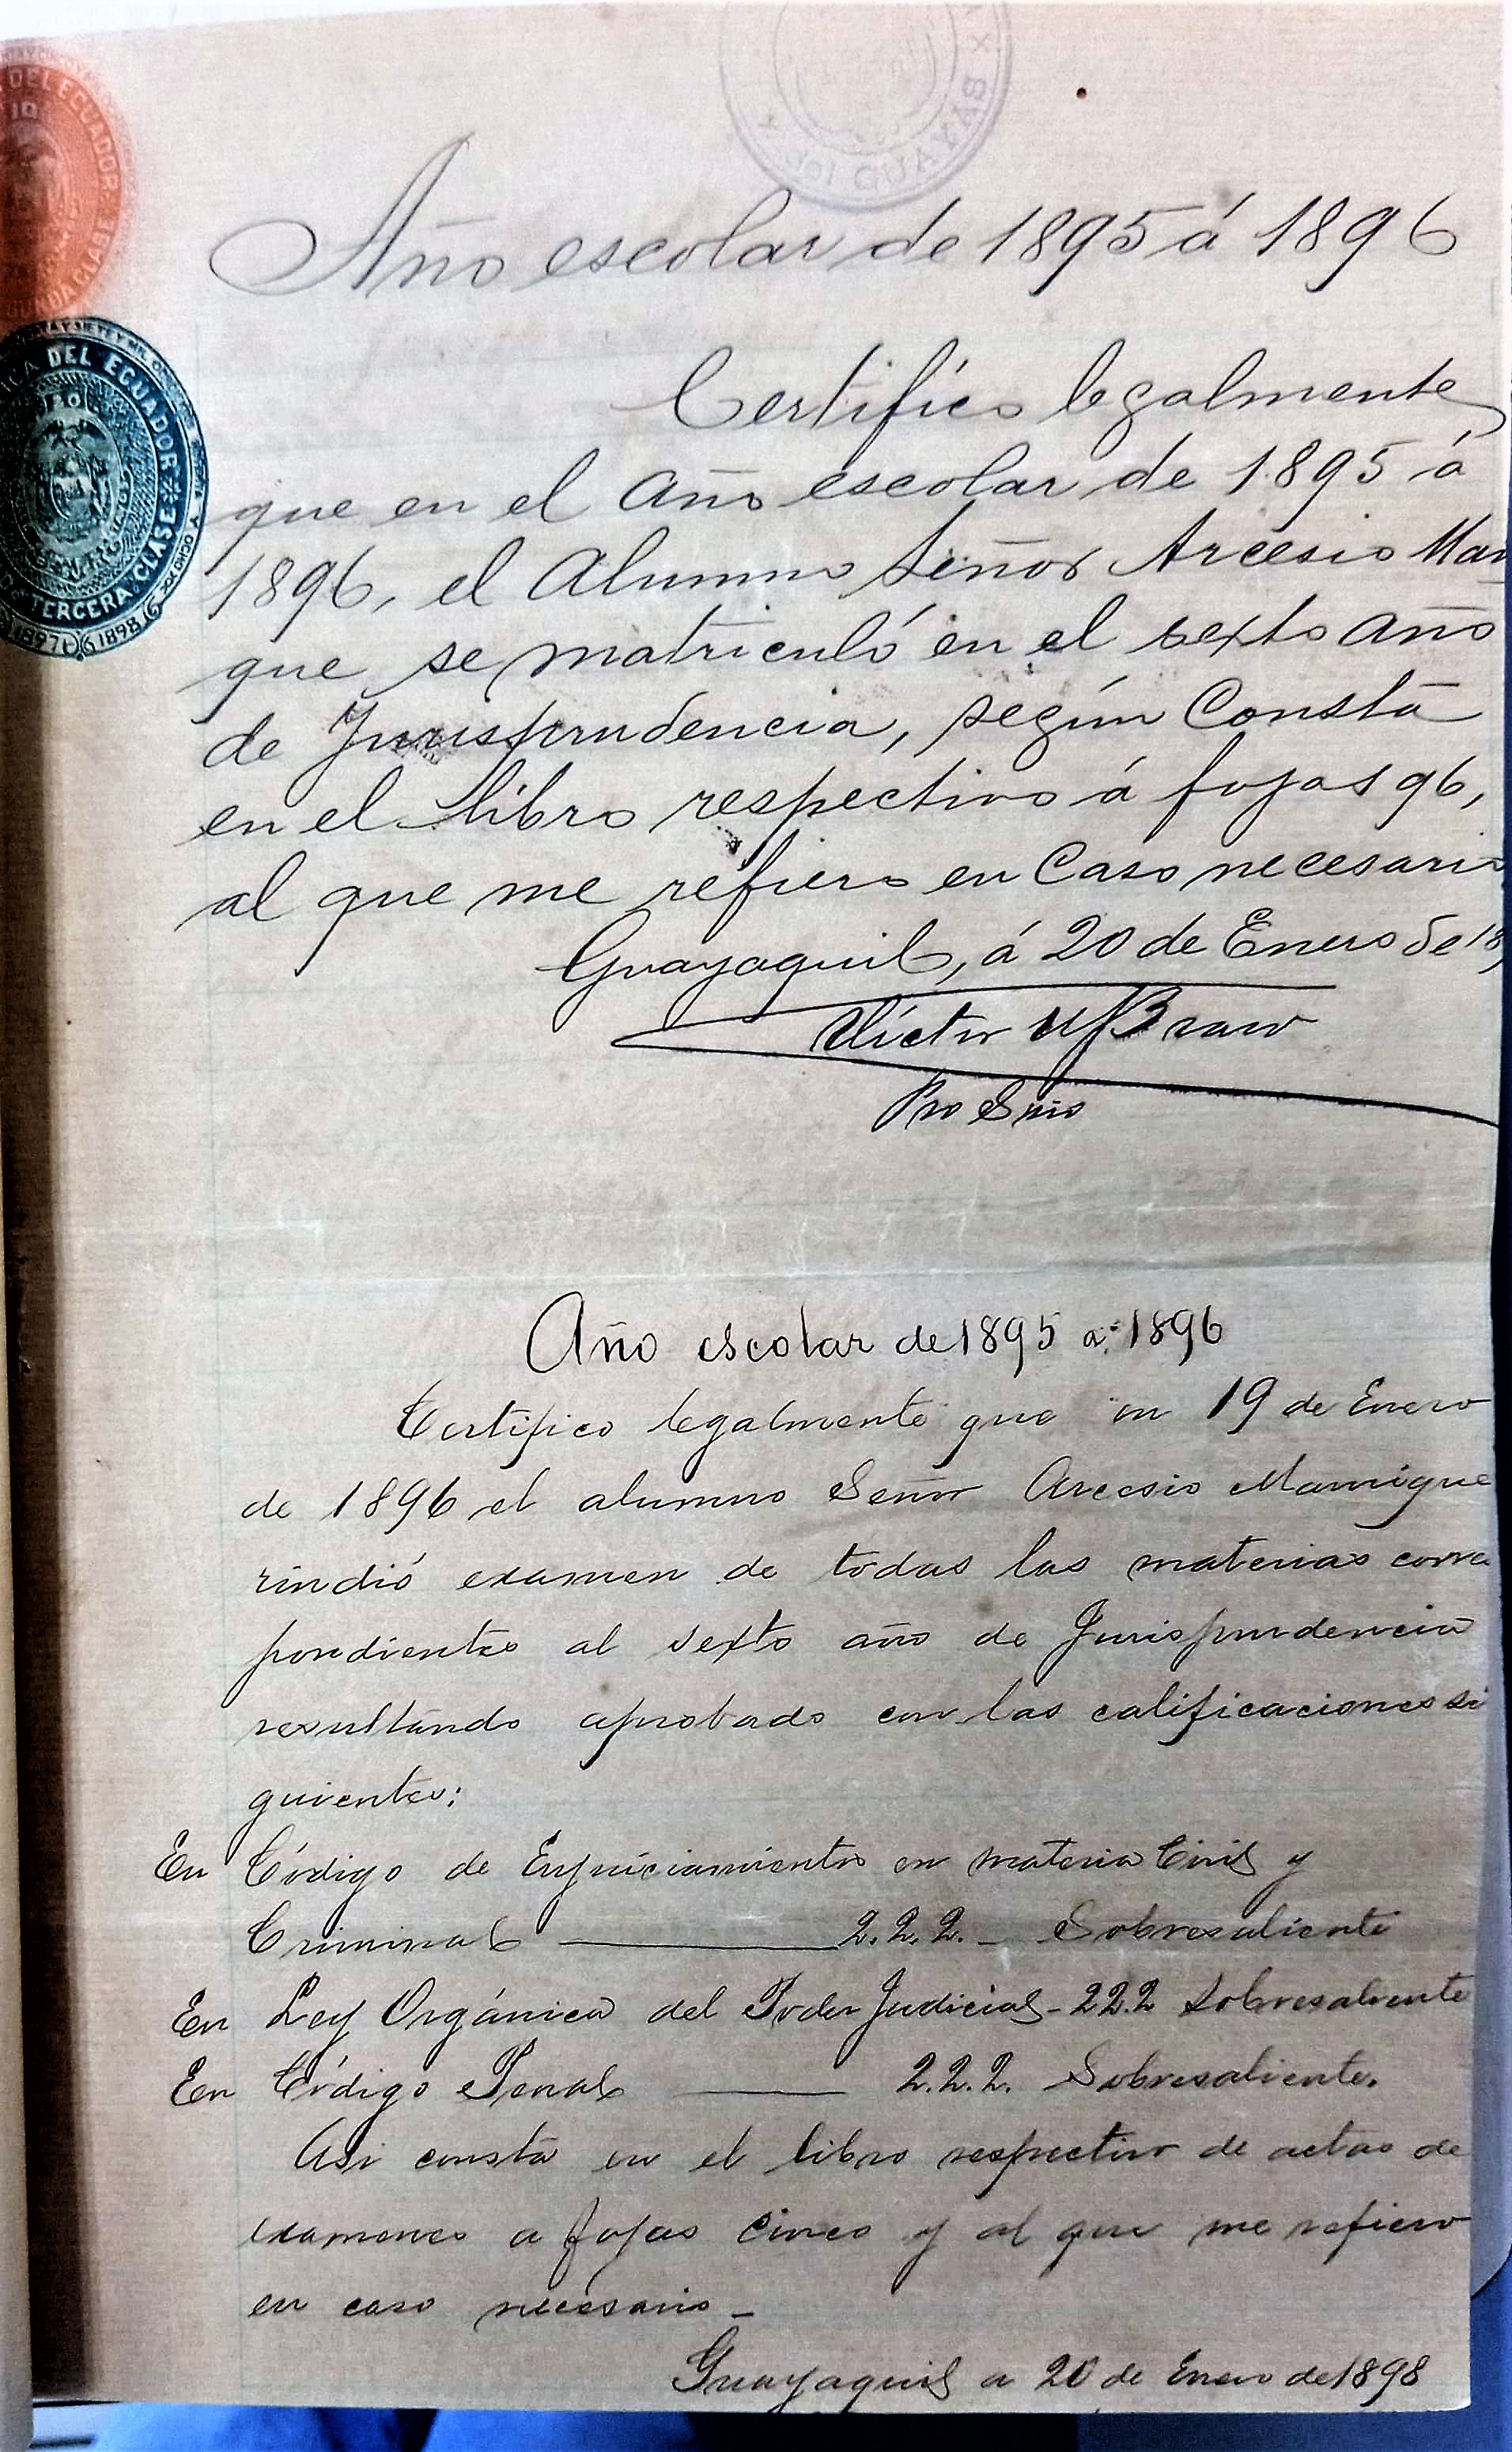 GUAYAS
DEL ECUADOR
DEL ECUADOR
TERCERA CLASE
1897 1898
Año escolar de 1895 á 1896
Certifico legalmente
que en el año escolar de 1895 á
1896, el alumno Señor Arcesio Man
que se matriculó en el sexto año
de Jurisprudencia, según consta
en el libro respectivo á fojas 96,
al que me refiero en caso necesario
Guayaquil, á 20 de Enero de 18
Víctor M Bravo
Pro Srio
Año escolar de 1895 a 1896
Certifico legalmente que en 19 de Enero
de 1896 el alumno Señor Arcesio Manrique
rindió examen de todas las materias corres
pondientes al sexto año de Jurisprudencia
resultando aprobado con las calificaciones si
guientes:
En Código de Enjuiciamientos en materia Civil y
Criminal 2.2.2. - Sobresaliente
En Ley Orgánica del Poder Judicial - 2 2.2 Sobresaliente
En Código Penal 2.2.2. Sobresaliente.
Asi consta en el libro respectivo de actas de
examenes a fojas cinco y al que me refiero
en caso necesario -
Guayaquil a 20 de Enero de 1898